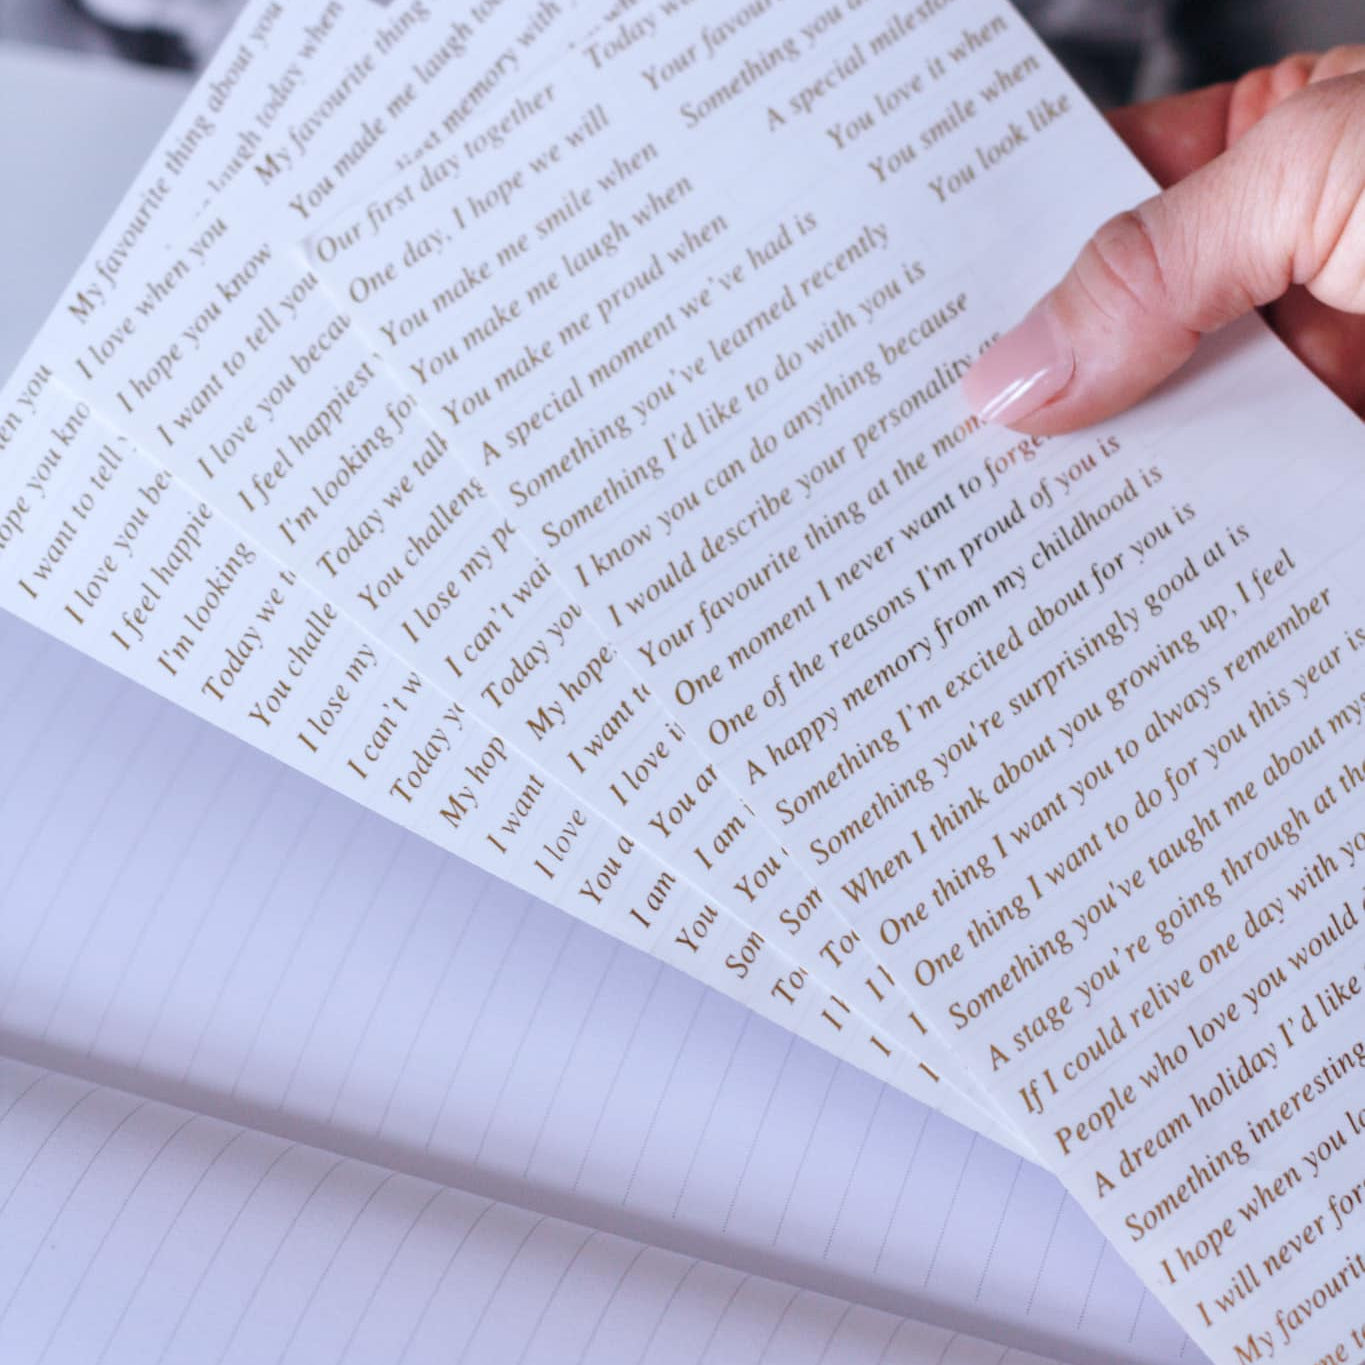 My favourite thing about you
laugh today when
My favourite thing
You made me laugh
memory with
I love when you
I hope you know
I want to tell you
I love you
I feel happiest
I'm looking for
Today we talk
You
I lose my
I can't
Today you
My hope
I want
I love
You
I am
You
en you
ope you
I want to tell
I love you
I feel
I'm looking
Today we
You
I lose my
I can't
Today
My
I want
I love
You
I am
You
I
I
Today
Your
Something you
A special
You love it when
You smile when
You look like
Our first day together
One day, I hope we will
You make me smile when
You make me laugh when
You make me proud when
A special moment we've had is
Something you've learned recently
Something I'd like to do with you is
I know you can do anything because
I would describe your personality
Your favourite thing at the
One moment I never want to
One of the reasons I'm proud of you is
A happy memory from my childhood is
Something I'm excited about for you is
Something you're surprisingly good at is
When I think about you growing up, I feel
One thing I want you to always remember
One thing I want to do for you this year is
Something you've taught me about my
A stage you're going through at the
If I could relive one day with
People who love you would
A dream holiday I'd like
Something interesting
I hope when you
I will never
My